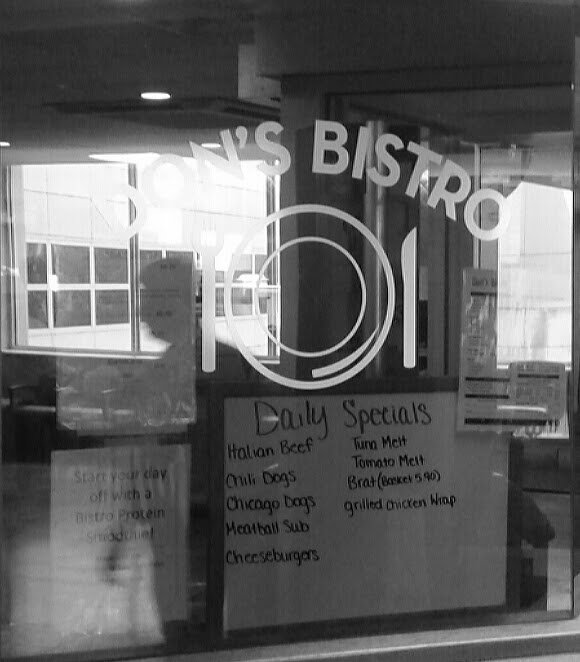 DON'S BISTRO
Daily Specials
Italian Beef
Chili Dogs
Chicago Dogs
Meatball Sub
Cheeseburgers
Tuna Melt
Tomato Melt
Brat (Basket 5.90)
grilled chicken Wrap
Start your day
off with a
Bistro Protein
Smoothie!